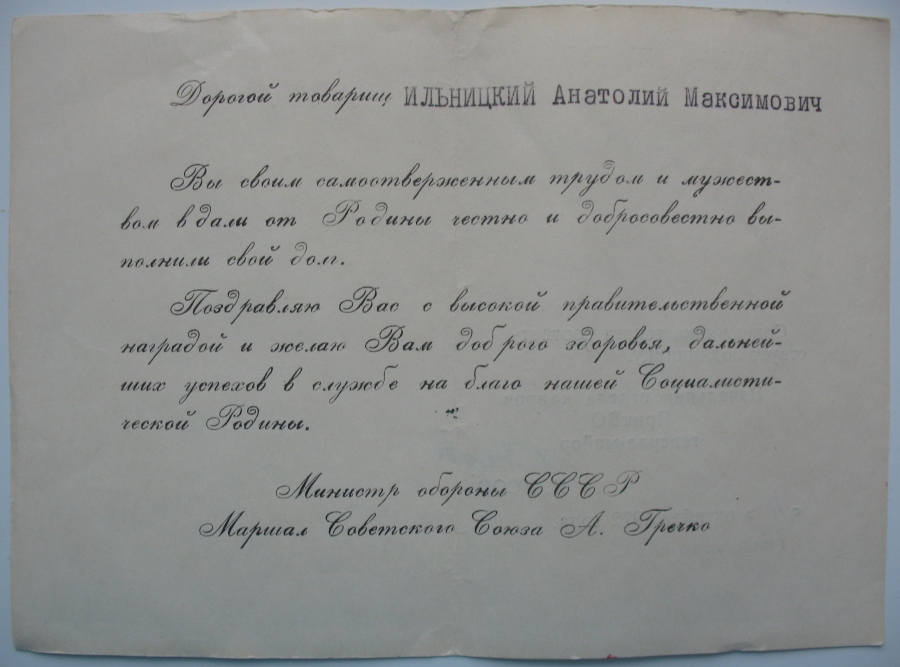 Дорогой товарищ ИЛЬНИЦКИЙ Анатолий Максимович
Вы своим самоотверженным трудом и мужест-
вом вдали от Родины честно и добросовестно вы-
полнили свой долг.
Поздравляю Вас с высокой правительственной
наградой и желаю Вам доброго здоровья, дальней-
ших успехов в службе на благо нашей Социалисти-
ческой Родины.
Министр обороны СССР
Маршал Советского Союза А. Гречко